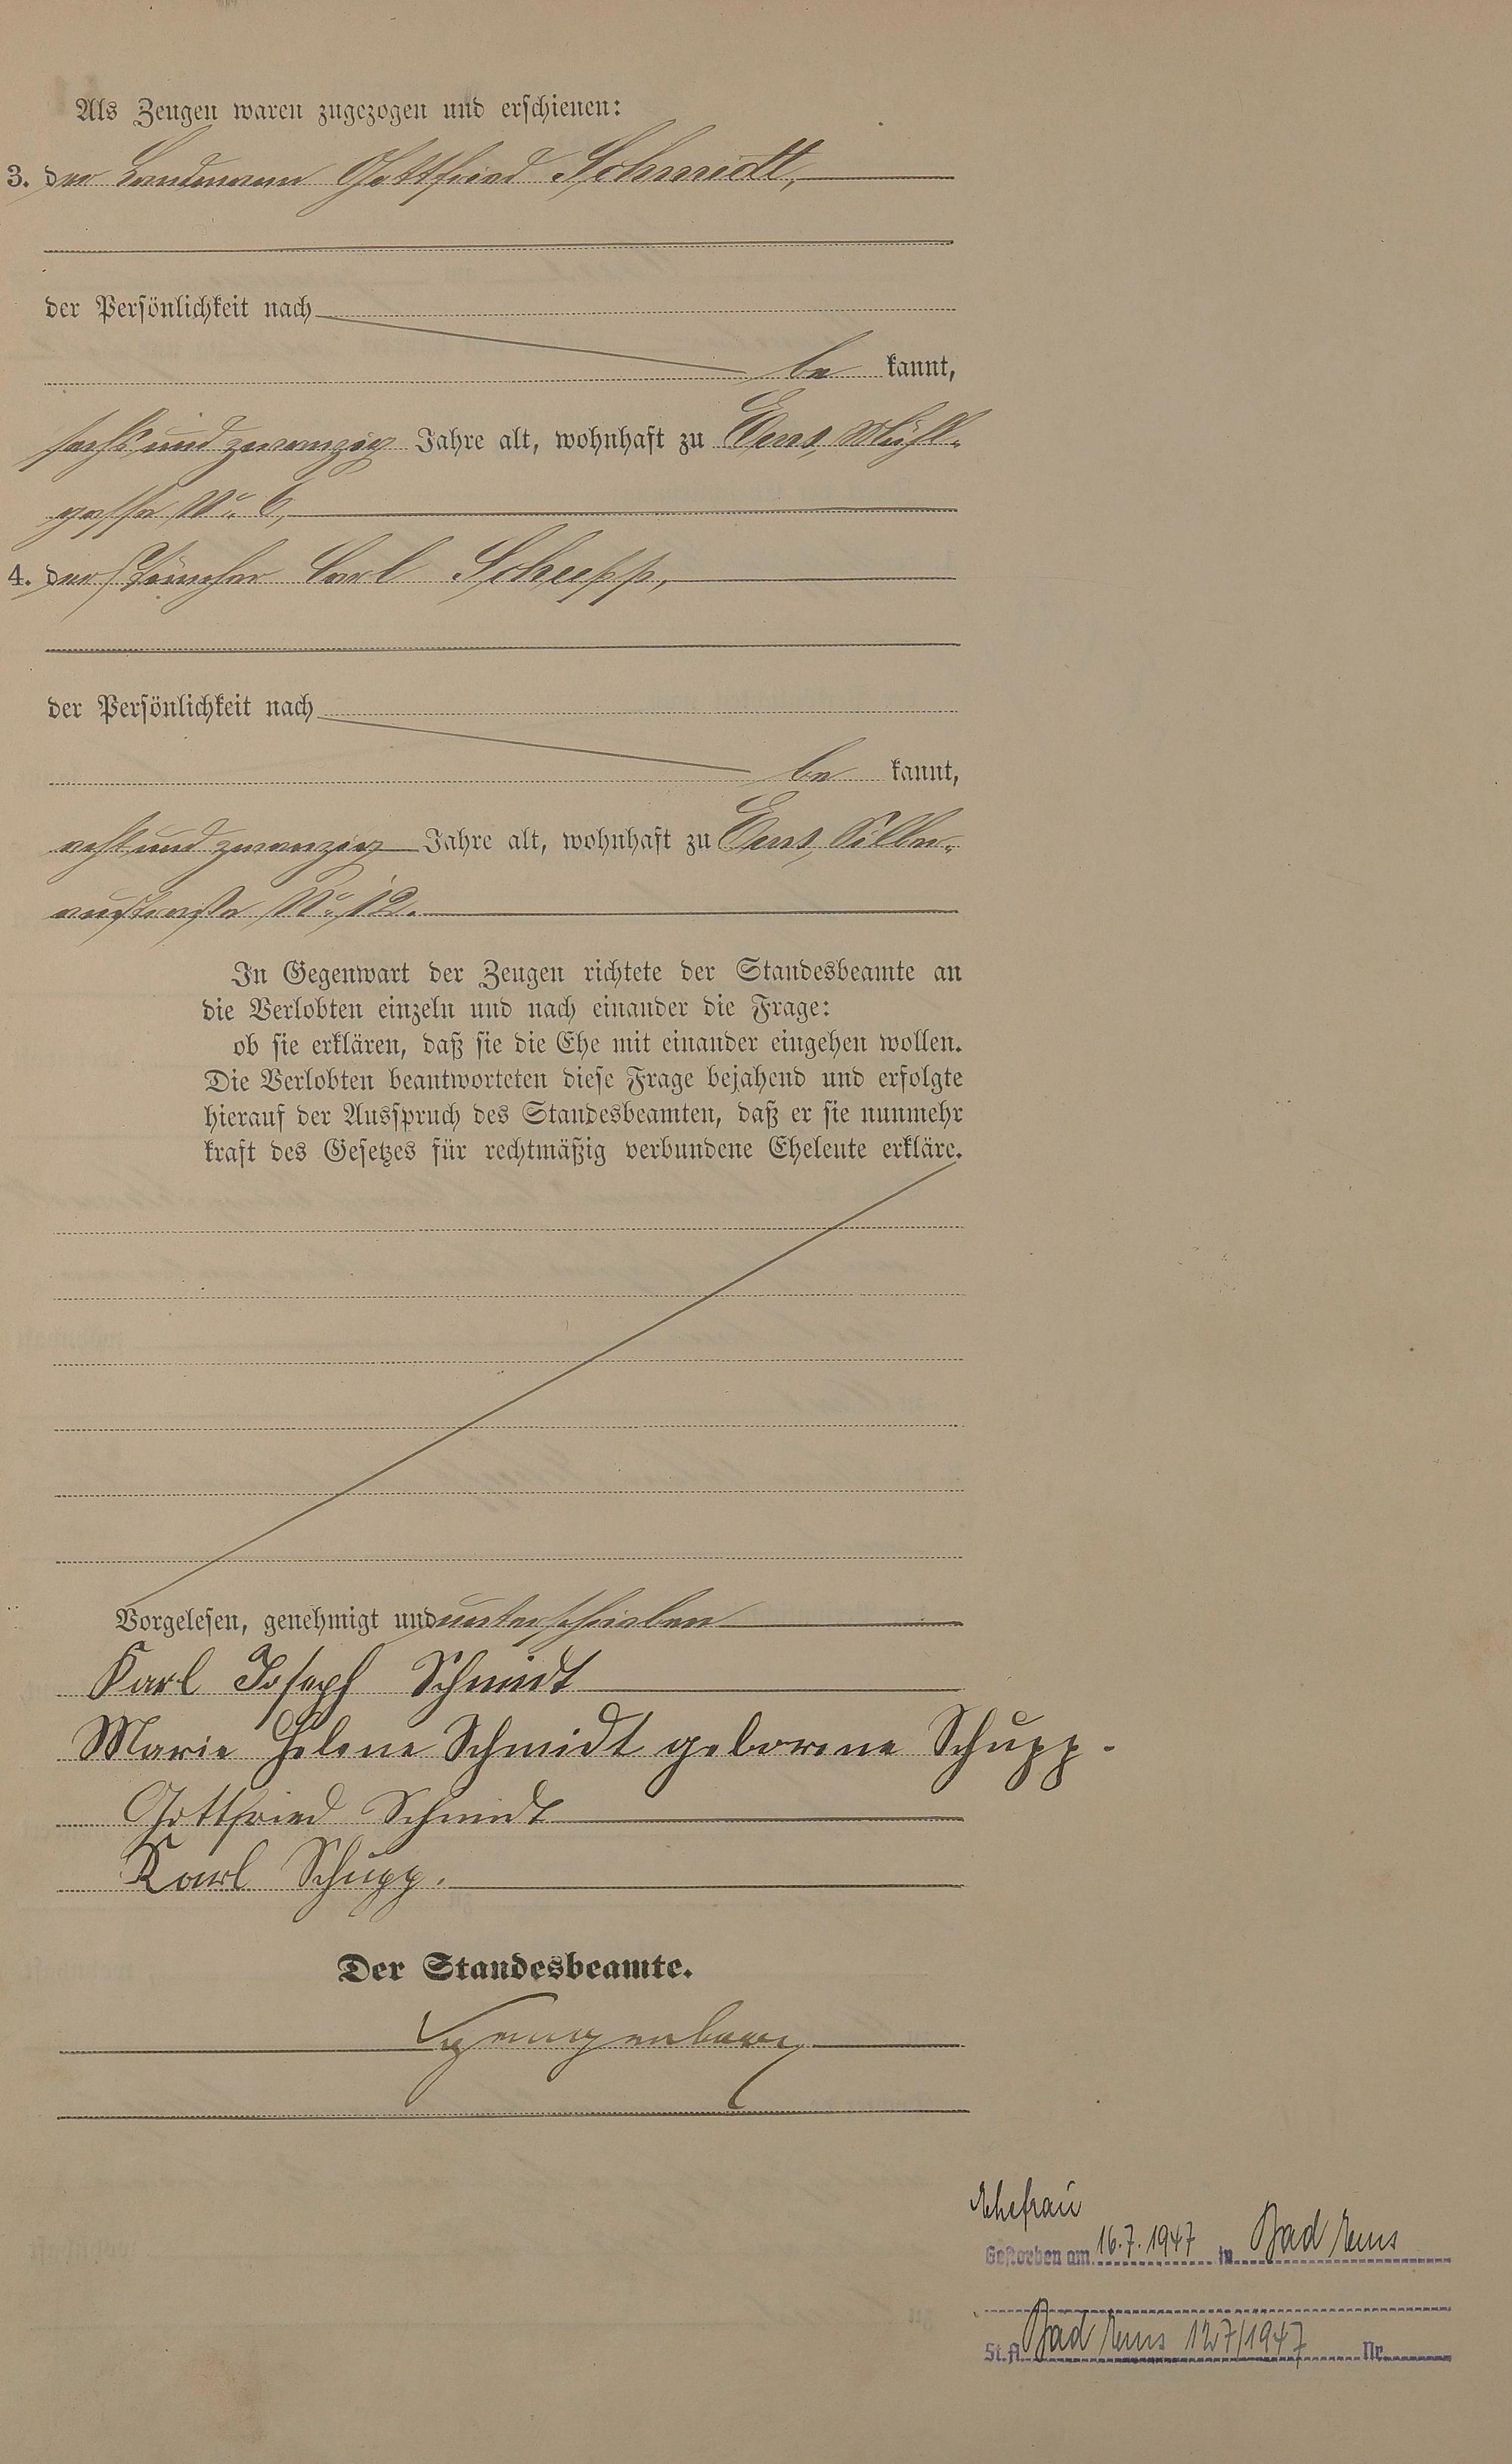 Als Zeugen waren zugezogen und erschienen:
3. der Landmann Gottfried Schmidt,
der Persönlichkeit nach
be kannt,
sechs und zwanzig Jahre alt, wohnhaft zu Ems, Mühl-
gasse No. 6,
4. der Tüncher Carl Schupp,
der Persönlichkeit nach
be kannt,
acht und zwanzig Jahre alt, wohnhaft zu Ems, Silber-
austraße No. 12.
In Gegenwart der Zeugen richtete der Standesbeamte an
die Verlobten einzeln und nach einander die Frage:
ob sie erklären, daß sie die Ehe mit einander eingehen wollen.
Die Verlobten beantworteten diese Frage bejahend und erfolgte
hierauf der Ausspruch des Standesbeamten, daß er sie nunmehr
kraft des Gesetzes für rechtmäßig verbundene Eheleute erkläre.
Vorgelesen, genehmigt und unterschrieben
Karl Joseph Schmidt
Marie Helene Schmidt geborene Schupp.
Gottfried Schmidt
Karl Schupp.
Der Standesbeamte.
Ehefrau
Gestorben am 16.7.1947 in Bad Ems
St.A. Bad Ems 127/1947 Nr.